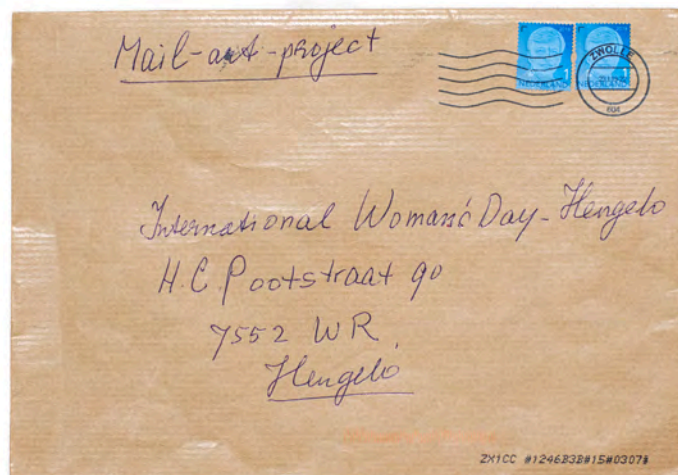 Mail-art-project
1 1
NEDERLAND NEDERLAND
ZWOLLE
International Woman's Day - Hengelo
H.C. Pootstraat 90
7552 WR
Hengelo
ZX1CC #1246B3B#15#0307#